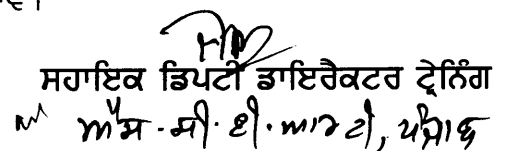 ਸਹਾਇਕ ਡਿਪਟੀ ਡਾਇਰੈਕਟਰ ਟ੍ਰੇਨਿੰਗ
ਐਸ.ਸੀ.ਈ.ਆਰ.ਟੀ, ਪੰਜਾਬ